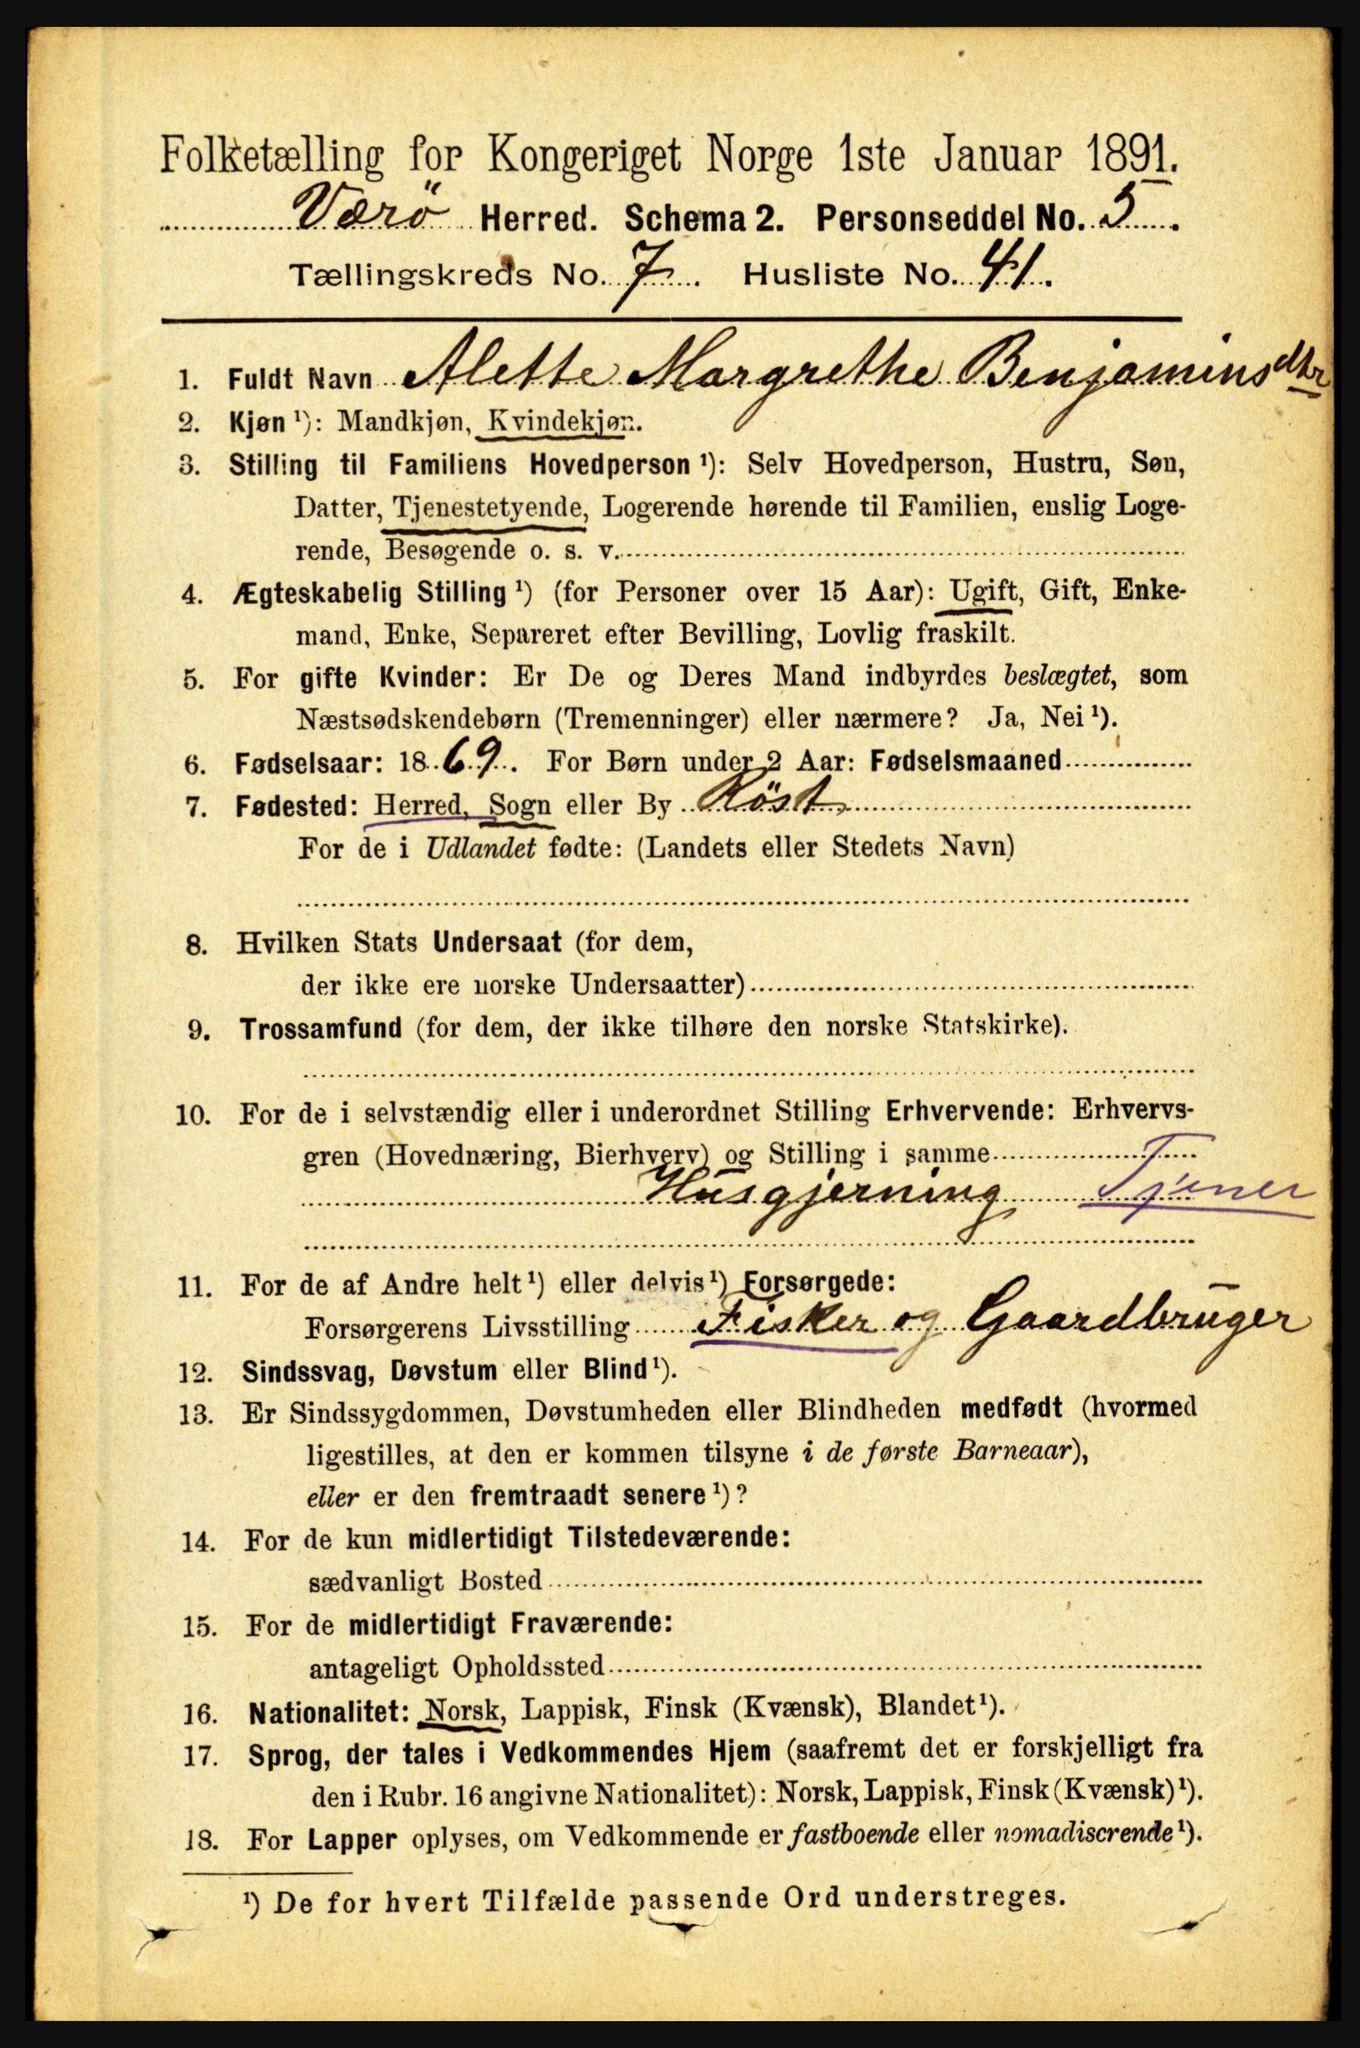 Folketælling for Kongeriget Norge 1ste Januar 1891.
Værö Herred. Schema 2. Personseddel No. 5.
Tællingskreds No. 7. Husliste No. 41.
1. Fuldt Navn Alette Margrethe Benjaminsdtr
2. Kjøn ¹): Mandkjøn, Kvindekjøn.
3. Stilling til Familiens Hovedperson ¹): Selv Hovedperson, Hustru, Søn,
Datter, Tjenestetyende, Logerende hørende til Familien, enslig Loge-
rende, Besøgende o. s. v.
4. Ægteskabelig Stilling ¹) (for Personer over 15 Aar): Ugift, Gift, Enke-
mand, Enke, Separeret efter Bevilling, Lovlig fraskilt.
5. For gifte Kvinder: Er De og Deres Mand indbyrdes beslægtet, som
Næstsødskendebørn (Tremenninger) eller nærmere? Ja, Nei ¹).
6. Fødselsaar: 1869. For Børn under 2 Aar: Fødselsmaaned
7. Fødested: Herred, Sogn eller By Röst
For de i Udlandet fødte: (Landets eller Stedets Navn)
8. Hvilken Stats Undersaat (for dem,
der ikke ere norske Undersaatter)
9. Trossamfund (for dem, der ikke tilhøre den norske Statskirke).
10. For de i selvstændig eller i underordnet Stilling Erhvervende: Erhvervs-
gren (Hovednæring, Bierhverv) og Stilling i samme
Husgjerning Tjener
11. For de af Andre helt ¹) eller delvis ¹) Forsørgede:
Forsørgerens Livsstilling Fisker og Gaardbruger
12. Sindssvag, Døvstum eller Blind ¹).
13. Er Sindssygdommen, Døvstumheden eller Blindheden medfødt (hvormed
ligestilles, at den er kommen tilsyne i de første Barneaar),
eller er den fremtraadt senere ¹)?
14. For de kun midlertidigt Tilstedeværende:
sædvanligt Bosted
15. For de midlertidigt Fraværende:
antageligt Opholdssted
16. Nationalitet: Norsk, Lappisk, Finsk (Kvænsk), Blandet ¹).
17. Sprog, der tales i Vedkommendes Hjem (saafremt det er forskjelligt fra
den i Rubr. 16 angivne Nationalitet): Norsk, Lappisk, Finsk (Kvænsk) ¹).
18. For Lapper oplyses, om Vedkommende er fastboende eller nomadiserende ¹).
¹) De for hvert Tilfælde passende Ord understreges.